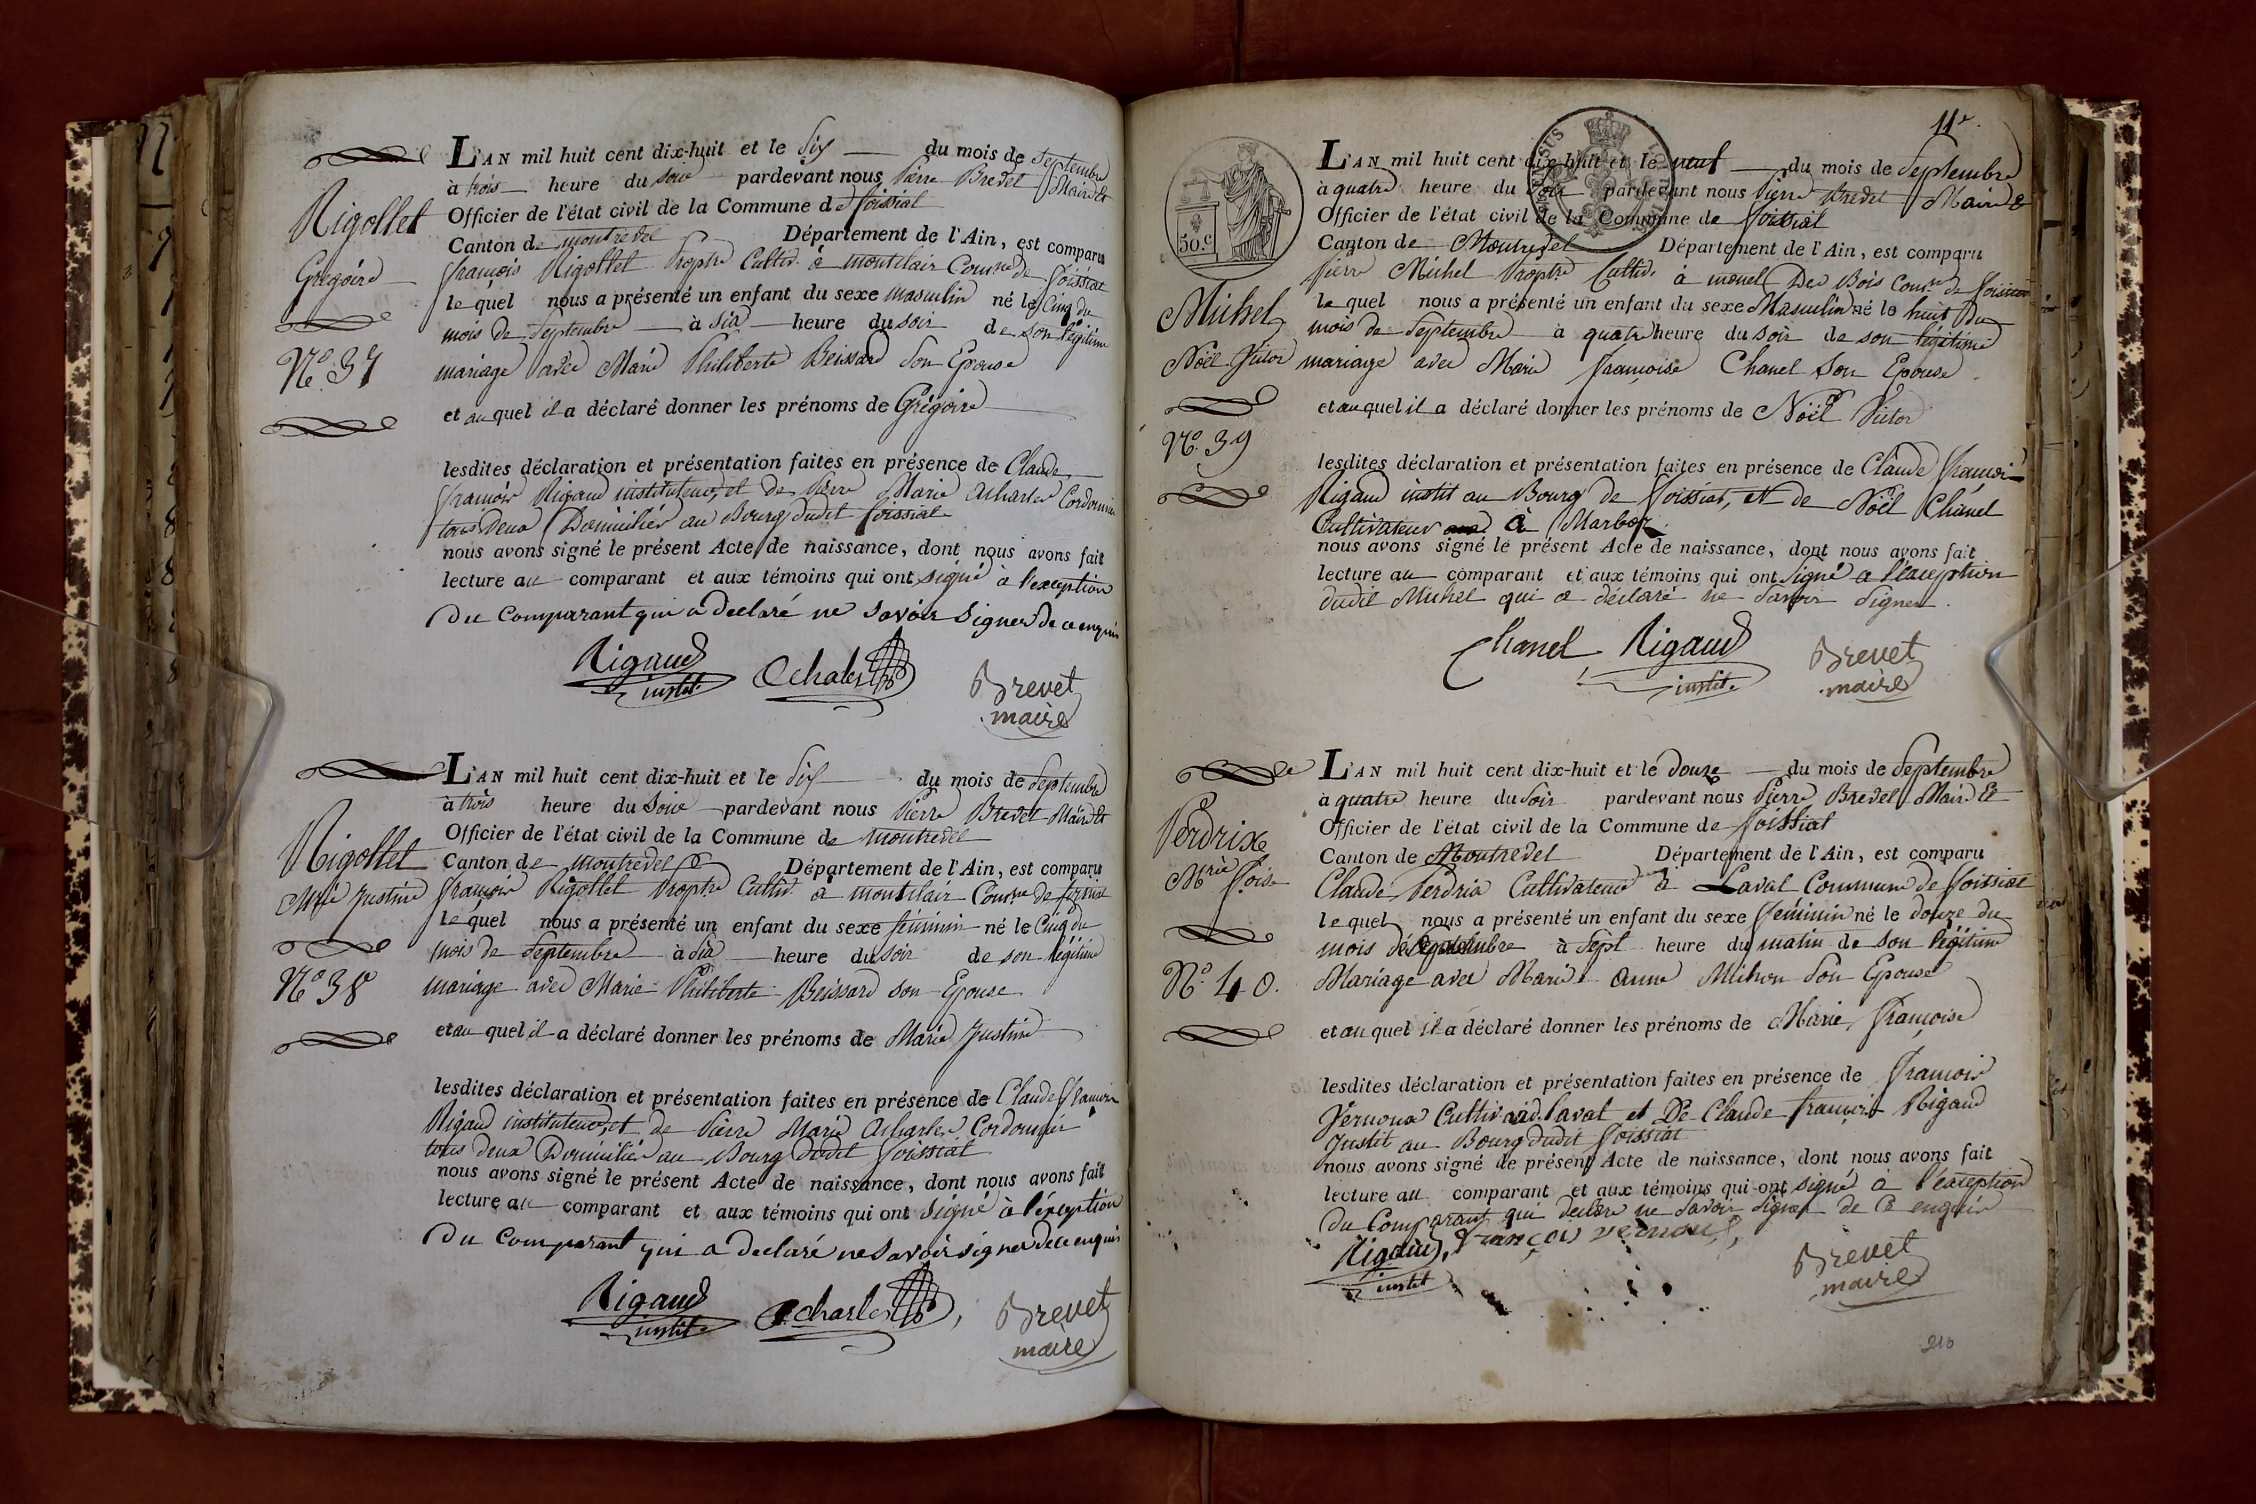 L'AN mil huit cent dix-huit et le Six du mois de Septembre
à trois heure du soir pardevant nous Pierre Brevet Maire et
Officier de l'état civil de la Commune de foissiat
Canton de montrevel Département de l'Ain, est comparu
françois Rigollet Proptre Cultiv. à montclair Comne de foissiat
le quel nous a présenté un enfant du sexe masculin né le Cinq du
mois de Septembre à Six heure du soir de son légitime
mariage avec Marie Philiberte Beissard Son Epouse
et au quel il a déclaré donner les prénoms de Grégoire
lesdites déclaration et présentation faites en présence de Claude
françois Rigaud instituteur, et de Pierre Marie Acharles Cordonnier
tous deux Domiciliés au Bourg dudit foissiat
nous avons signé le présent Acte de naissance, dont nous avons fait
lecture au comparant et aux témoins qui ont signé à l'exception
Du Comparant qui a declaré ne savoir signer de ce enquis
Rigaud
instit.
Acharles
Brevet
maire
Rigollet
Grégoire
No. 37
L'AN mil huit cent dix-huit et le Six du mois de Septembre
à trois heure du Soir pardevant nous Pierre Brevet Maire et
Officier de l'état civil de la Commune de montrevel
Canton de montrevel Département de l'Ain, est comparu
françois Rigollet Proptre Cultiv. à montclair Comne de foissiat
le quel nous a présenté un enfant du sexe féminin né le Cinq du
mois de Septembre à Six heure du soir de son légitime
mariage avec Marie Philiberte Beissard son Epouse
et au quel il a déclaré donner les prénoms de Marie Justine
lesdites déclaration et présentation faites en présence de Claude françois
Rigaud instituteur, et de Pierre Marie Acharles Cordonnier
tous deux Domiciliés au Bourg dudit foissiat
nous avons signé le présent Acte de naissance, dont nous avons fait
lecture au comparant et aux témoins qui ont signé à l'éxception
Du Comparant qui a declaré ne savoir signer de ce enquis
Rigaud
instit.
Acharles
Brevet
maire
Rigollet
Marie Justine
No. 38
11e
50.c
L'AN mil huit cent dix-huit et le neuf du mois de Septembre
à quatre heure du Soir pardevant nous Pierre Brevet Maire &
Officier de l'état civil de la Commune de foissiat
Canton de Montrevel Département de l'Ain, est comparu
Pierre Michel Proptre Cultiv. à Des Bois Comne de foissiat
le quel nous a présenté un enfant du sexe Masculin né le huit Du
mois de Septembre à quatre heure du soir de son légitime
mariage avec Marie françoise Chanel Son Epouse
et au quel il a déclaré donner les prénoms de Noël Victor
lesdites déclaration et présentation faites en présence de Claude françois
Rigaud instit au Bourg de foissiat, et de Noël Chanel
Cultivateur à Marboz
nous avons signé le présent Acte de naissance, dont nous avons fait
lecture au comparant et aux témoins qui ont Signé à l'éxception
dudit Michel qui a déclaré ne Savoir Signer.
Chanel
Rigaud
instit.
Brevet
maire
Michel
Noël Victor
No. 39
L'AN mil huit cent dix-huit et le Douze du mois de Septembre
à quatre heure du Soir pardevant nous Pierre Brevet Maire Et
Officier de l'état civil de la Commune de foissiat
Canton de Montrevel Département de l'Ain, est comparu
Claude Perdrix Cultivateur à Laval Commune de foissiat
le quel nous a présenté un enfant du sexe féminin né le douze du
mois de Septembre à Sept heure du matin de son légitime
Mariage avec Marie anne Michon Son Epouse
et au quel il a déclaré donner les prénoms de Marie françoise
lesdites déclaration et présentation faites en présence de françois
Vernoux Cultiv. aud. laval et De Claude françois Rigaud
Instit au Bourg dudit foissiat
nous avons signé le présent Acte de naissance, dont nous avons fait
lecture au comparant et aux témoins qui ont signé à l'éxception
Du Comparant qui declare ne Savoir Signer de ce enquis
Rigaud,
instit
françois vernoux,
Brevet
maire
Perdrix
Mrie foise
No. 40.
210